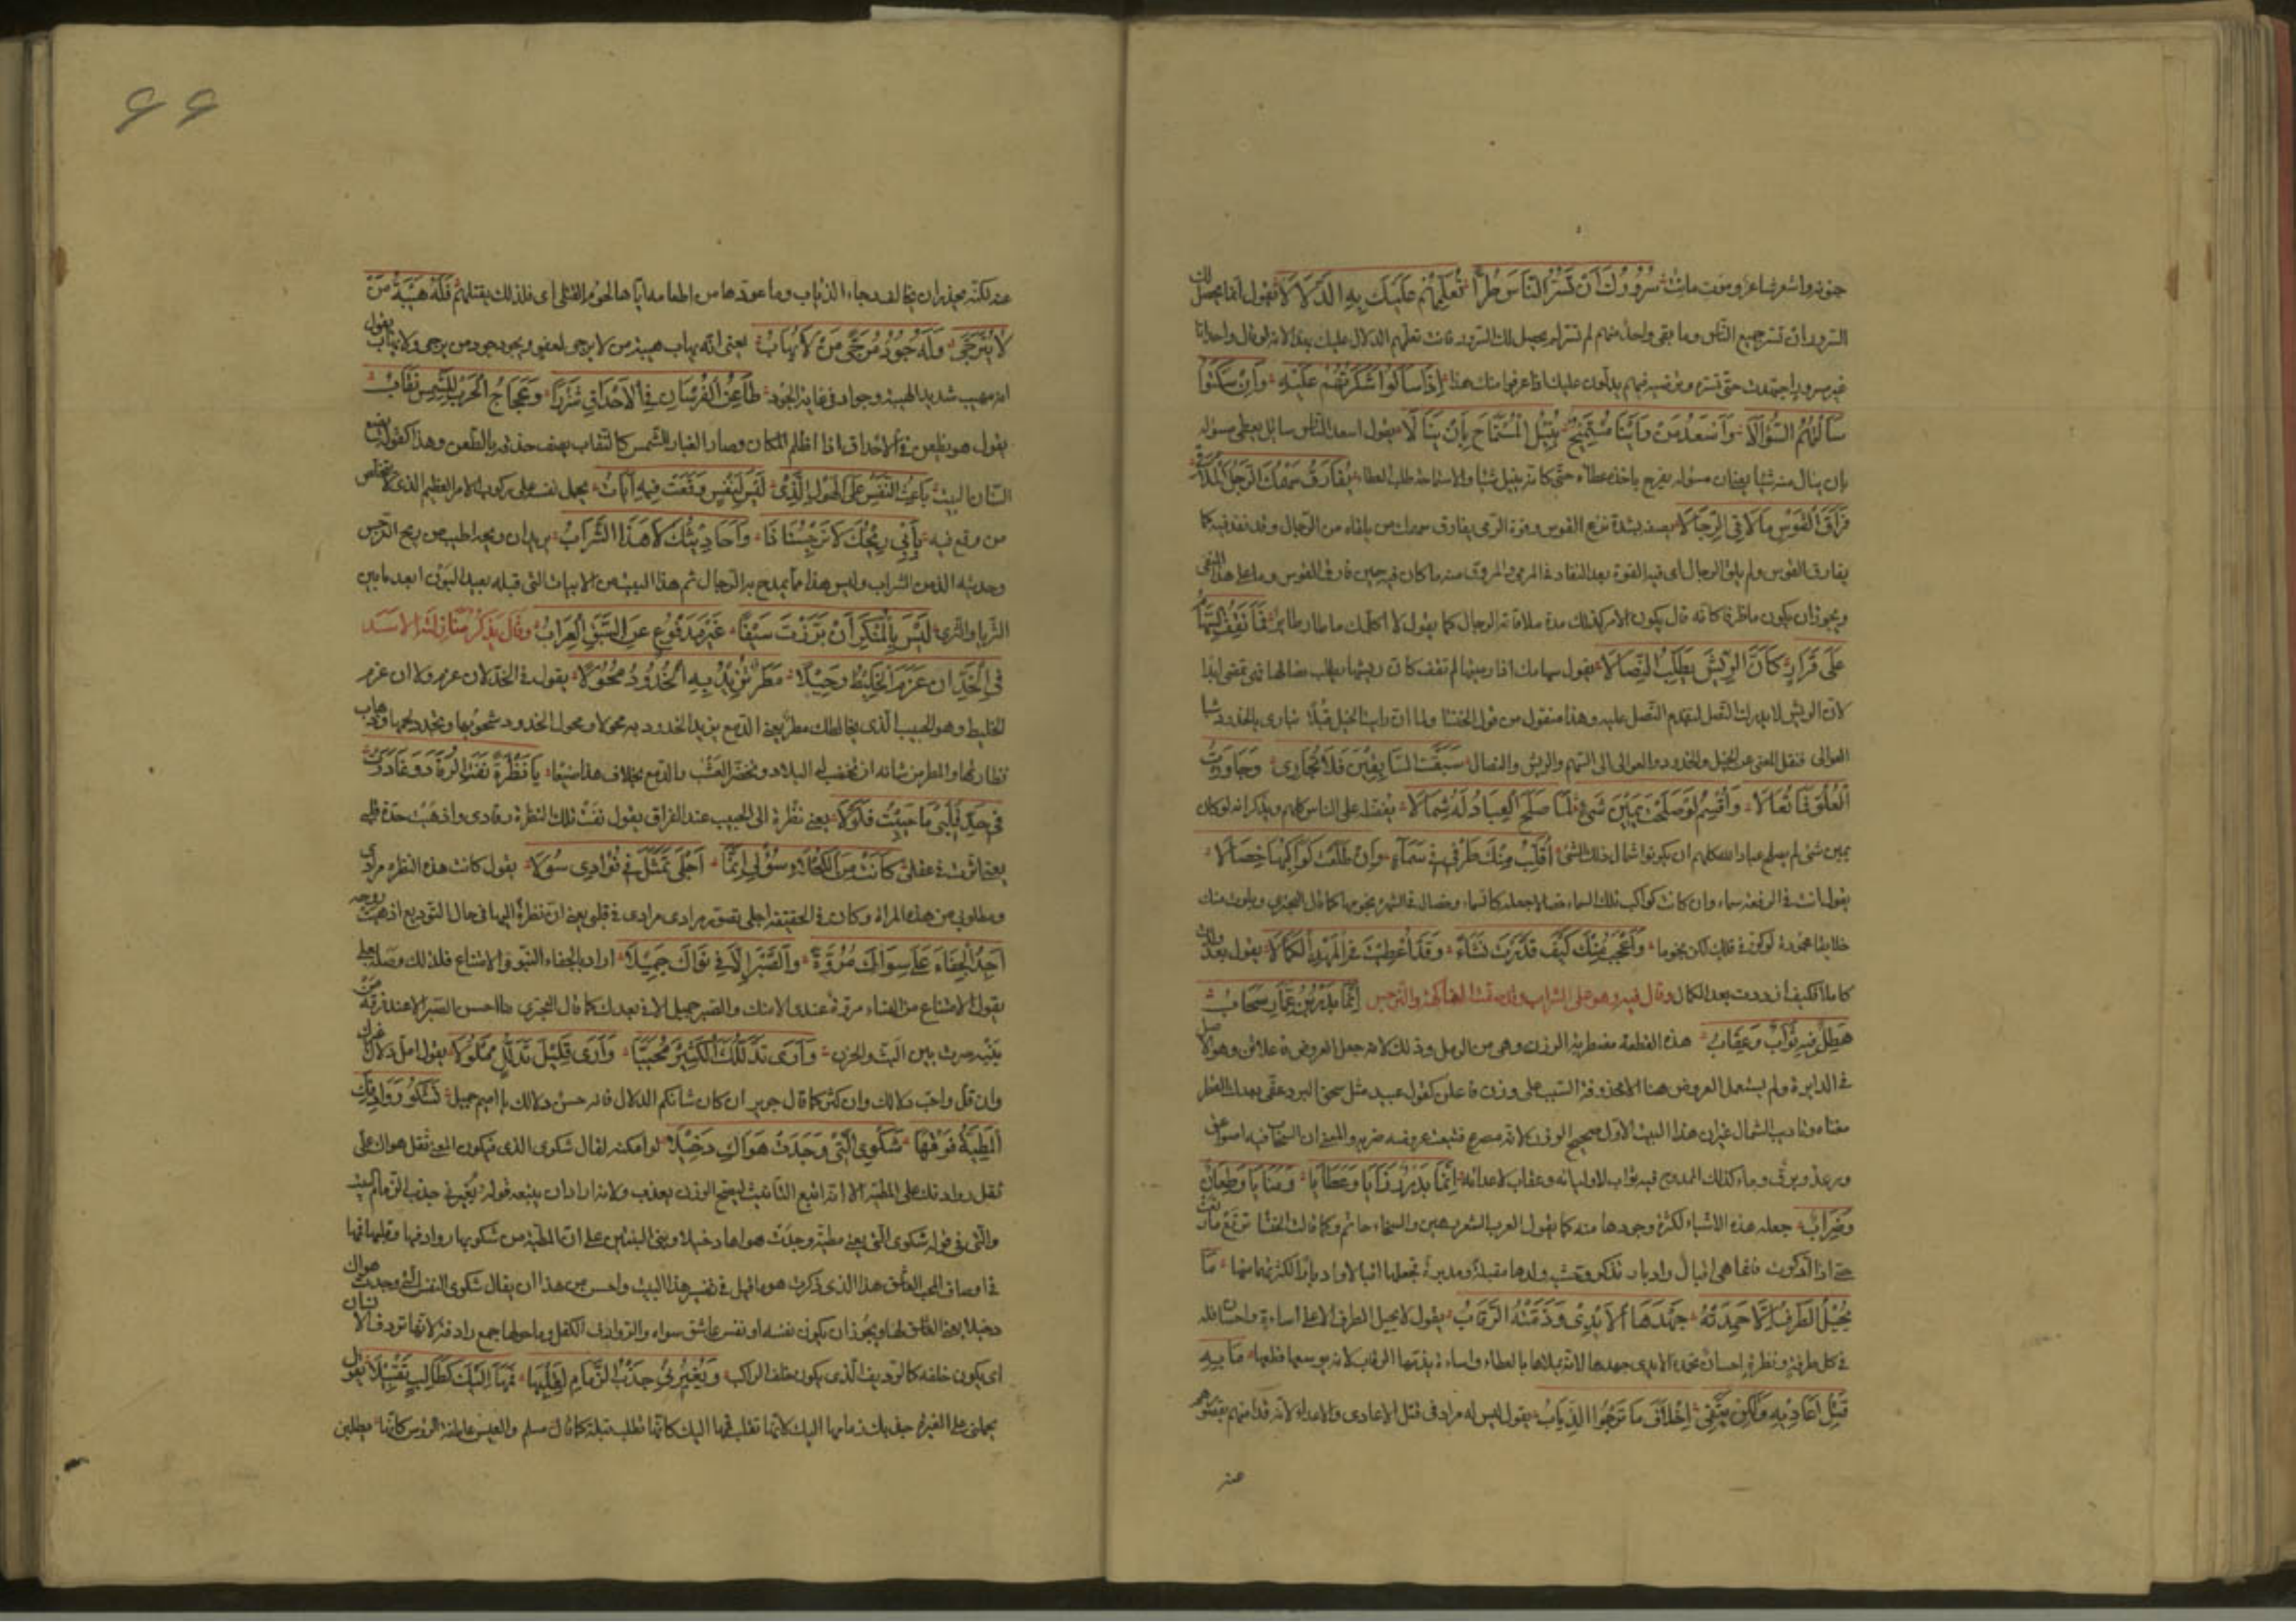 جنونه واشعر شاعر ومت مات سُرُورُكَ أَنْ تَسُرَّ النَّاسَ طُرًّا تُعَلِّمُهُمْ عَلَيْكَ بِهِ الدَّلَالَا يقول انما يحصل لك
السرور ان تسر جميع الناس وما بقى واحد منهم لم تسره لم يحصل لك السرور فانت تعلمهم الدلال عليك بهذا لانه لو قال واحد انا
غير مسرور اجتهدت حتى تسره وترضيه فهم يدلون عليك اذا عرفوا منك هذا إِذَا سَأَلُوا شَكَرْتَهُمْ عَلَيْهِ وَإِنْ سَكَتُوا
سَأَلْتَهُمُ السُّؤَالَا وَأَسْعَدُ مَنْ رَأَيْنَا مُسْتَمِيحٌ يُنِيلُ الْمُسْتَمَاحَ بِأَنْ يَنَالَا يقول اسعد الناس سائل يعطى مسؤله
بان ينال منه شيا يعنى ان مسؤله يفرح باخذ عطائه حتى كانه ينيل شيا والاستماحة طلب العطاء يُفَارِقُ سَهْمُكَ الرَّجُلَ الْمُلَاقَى
فِرَاقَ الْقَوْسِ مَا لَاقَى الرِّجَالَا يصفه بشدة نزع القوس وقوة الرمى يفارق سهمك من يلقاه من الرجال وقد نفذ فيه كما
يفارق القوس ولم يلق الرجال اى فيه القوة بعد النفاذ فى المرمى والمروق منه ما كان فيه حين فارق القوس وما على هذا النفى
ويجوز ان يكون ما ظرفا كانه قال يكون الامر كذلك مدة ملاقاته الرجال كما يقول لا اكلمك ما طار طاير فَمَا تَقِفُ السِّهَامُ
عَلَى قَرَارٍ كَأَنَّ الرِّيشَ يَطَّلِبُ النِّصَالَا يقول سهامك اذا رميتها لم تقف كان ريشها يطلب نصالها فهى تمضى ابدا
لان الريش لا يدرك النصل لتقدم النصل عليه وهذا منقول من قول الخنسا ولما ان رايت الخيل قبلا تبارى بالخدود شبا
العوالى فنقل المعنى عن الخيل والخدود والعوالى الى السهم والريش والنصال سَبَقْتَ السَّابِقِينَ فَلَا تُجَارَى وَجَاوَزْتَ
الْعُلُوَّ فَمَا تُعَالَا وَأُقْسِمُ لَوْ صَلَحْتَ يَمِينَ شَىْءٍ لَمَا صَلَحَ الْعِبَادُ لَهُ شِمَالَا يفضله على الناس كلهم ويذكر انه لو كان
يمين شى لم يصلح عباد الله كلهم ان يكونوا شمال ذلك الشى أُقَلِّبُ مِنْكَ طَرْفِى فِى سَمَاءٍ وَإِنْ طَلَعَتْ كَوَاكِبُهَا خِصَالَا
يقول انت فى الرفعة سماء وان كانت كواكب تلك السماء خصالا جعله كالسماء وخصاله فى الشهرة نجومها كما قال البحترى وبلوت منك
خلايقا محمودة لو كن فى فلك لكن نجوما وَأَعْجَبُ مِنْكَ كَيْفَ قَدَرْتَ تَنْشَا وَقَدْ أُعْطِيتَ فِى الْمَهْدِ الْكَمَالَا يقول ولدت
كاملا فكيف ازددت بعد الكمال وقال فيه وهو على الشراب وقد صفت الفاكهة والنرجس إِنَّمَا بَدْرُ بْنُ عَمَّارٍ سَحَابُ
هَطِلٌ فِيهِ ثَوَابٌ وَعِقَابُ هذه القطعة مضطربة الوزن وهى من الرمل وذلك لانه جعل العروض فاعلاتن وهو الاصل
فى الدايرة ولم يستعمل العروض هنا الا محذوفة السبب على وزن فاعلن كقول عبيد مثل سحق البرد عفى بعدك القطر
مغناه وتاديب الشمال غير ان هذا البيت الاول صحيح الوزن لانه مصرع فتبعت عروضه ضربه والمعنى ان السحاب فيه صواعق
ورعد وبرق وماء كذلك الممدوح فيه ثواب لاوليائه وعقاب لاعدائه إِنَّمَا بَدْرٌ رَزَايَا وَعَطَايَا وَمَنَايَا وَطِعَانٌ
وَضِرَابُ جعله هذه الاشياء لكثرة وجودها منه كما يقول العرب الشعر زهير والسخاء حاتم وكما قالت الخنسا ترتع ما رتعت
حتى اذا ادكرت فانما هى اقبال وادبار تذكر وحشية ولدها مقبلة ومدبرة تجعلها اقبالا وادبارا لكثرتهما منها مَا
يُجِيلُ الطَّرْفَ إِلَّا حَمِدَتْهُ جَهْدَهَا الْأَيْدِى وَذَمَّتْهُ الرِّقَابُ يقول لا يجيل الطرف الا على اساءة واحسان فله
فى كل طرفة ونظرة احسان تحمده الايدى جهدها لانه يملاها بالعطاء واساءة يذمها الرقاب لانه يوسعها قطعا مَا بِهِ
قَتْلُ أَعَادِيهِ وَلَكِنْ يَتَّقِى إِخْلَافَ مَا تَرْجُوا الذِّيَابُ يقول ليس له مراد فى قتل الاعادى والاعداء لانه قد امنهم
عنه
٦٦
عنه لكنه يحذر ان يخالف رجاء الذئاب وما عودها من اطعامه اياها لحوم القتلى اى فلذلك يقتلهم فَلَهُ هَيْبَةُ مَنْ
لَا يُتَرَجَّى وَلَهُ جُودُ مُرَجًّى مَنْ لَا يُهَابُ يعنى انه يهاب هيبة من لا يرجى لعفو ويجود جود من يرجى ولا يهاب يقول
انه مهيب شديد الهيبة وجواد فى غاية الجود طَاعِنُ الْفُرْسَانِ فِى الْأَحْدَاقِ شَزْرًا وَعَجَاجُ الْحَرْبِ لِلشَّمْسِ نِقَابُ
يقول هو يطعن فى الاحداق اذا اظلم المكان وصار الغبار للشمس كالنقاب يصف حذقه بالطعن وهذا كقوله يضع
السنان البيت بَاعِثُ النَّفْسِ عَلَى الْهَوْلِ الَّذِى لَيْسَ لِنَفْسٍ وَقَعَتْ فِيهِ إِيَابُ يحمل نفسه على ركوب الامر العظيم الذى لا يتخلص
من وقع فيه بِأَبِى رِيحُكَ لَا نَرْجِسُنَا ذَا وَأَحَادِيثُكَ لَا هَذَا الشَّرَابُ يريد ان ريحه اطيب من ريح النرجس
وحديثه الذ من الشراب وليس هذا مما يمدح به الرجال ثم هذا البيت من الابيات التى قبله بعيد البون ابعد ما بين
الثريا والثرى لَيْسَ بِالْمُنْكَرِ أَنْ بَرَّزْتَ سَبْقًا غَيْرُ مَدْفُوعٍ عَنِ السَّبْقِ الْعِرَابُ وقال يذكر منازلته الاسد
فِى الْخَدِّ أَنْ عَزَمَ الْخَلِيطُ رَحِيلَا مَطَرٌ تَزِيدُ بِهِ الْخُدُودُ مُحُولَا يقول فى الخد لان عزم ولا ان عزم
الخليط وهو الحبيب الذى يخالطك مطر يعنى الدمع يزيد الخدود به محولا ومحول الخدود شحوبها وتخدد لحمها وذهاب
نظارتها والمطر من شانه ان تخصب له البلاد وتخضر العشب والدمع بخلاف هذا صنيعا يَا نَظْرَةً نَفَتِ الرُّقَادَ وَغَادَرَتْ
فِى حَدِّ قَلْبِى مَا حَيِيتُ فُلُولَا يعنى نظرة الى الحبيب عند الفراق يقول نفت تلك النظرة رقادى واذهبت حدة قلبى
يعنى اثرت فى عقلى كَانَتْ مِنَ الْكَحْلَاءِ سُؤْلِى إِنَّمَا أَجَلِى تَمَثَّلَ فِى فُؤَادِى سُولَا يقول كانت هذه النظرة مرادى
ومطلوبى من هذه المراة وكانت فى الحقيقة اجلى تصور مرادى فى قلبى يعنى ان نظرة اليها فى حال التوديع اذهبت روحه
أَجِدُ الْجَفَاءَ عَلَى سِوَاكِ مُرُوَّةً وَالصَّبْرَ إِلَّا فِى نَوَاكِ جَمِيلَا اراد بالجفاء النبو والامتناع فلذلك وصله بعلى
يقول الامتناع من النساء مروة عندى الا منك والصبر جميل الا فى بعدك كما قال البحترى ما احسن الصبر الا عند فرقة من
ببينه صرت بين البث والحزن وَأَرَى تَدَلُّلَكِ الْكَثِيرَ مُحَبَّبًا وَأَرَى قَلِيلَ تَدَلُّلٍ مَمْلُولَا يقول امل دلال غيرك
وان قل واحب دلالك وان كثر كما قال جرير ان كان شانكم الدلال فانه حسن دلالك يا اميم جميل تَشْكُو رَوَادِفَكِ
الْمَطِيَّةُ فَوْقَهَا شَكْوَى الَّتِى وَجَدَتْ هَوَاكِ دَخِيلَا لو امكنه لقال شكوى الذى فيكون المعنى ثقل هواك على
ثقل روادفك على المطية الا انه اتبع التانيث ليصح الوزن
والتى فى قوله شكوى التى يعنى مطية وجدت هواها دخيلا
هواك
اى يكون خلفه كالرديف الذى يكون خلف الراكب وَيُغِيرُنِى جَذْبُ الزِّمَامِ لِقَلْبِهَا فَمَهَا إِلَيْكِ كَطَالِبٍ تَقْبِيلَا يقول
يحملنى على الغيرة جذبك زمامها اليك لانها تقلب فمها اليك كانها تطلب قبلة كما قال مسلم والعيس عاطفة الرؤس كانما يطلبن